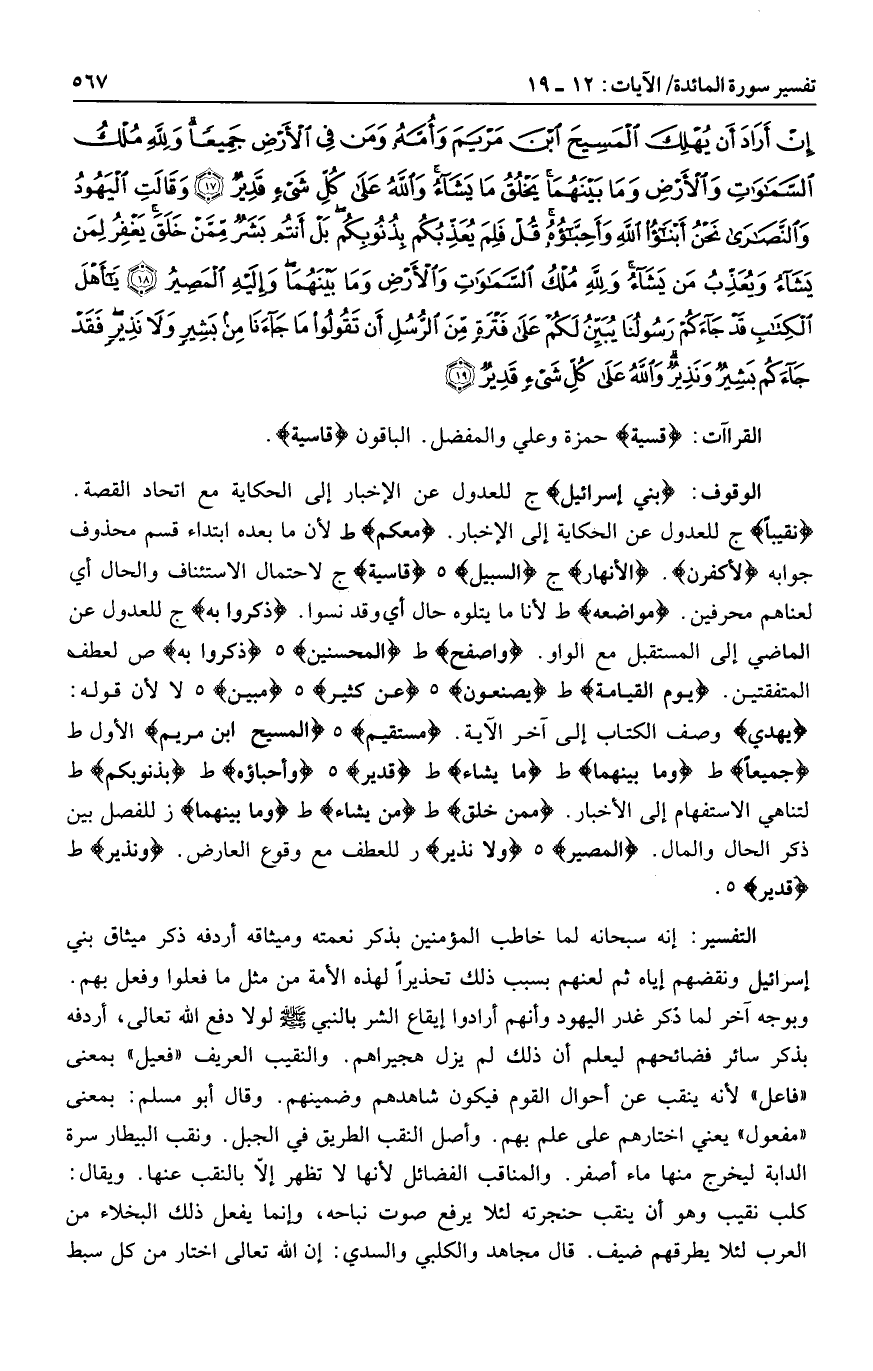 تفسير سورة المائدة/ الآيات: ١٢ ـ ١٩ ٥٦٧
إِنْ أَرَادَ أَن يُهْلِكَ الْمَسِيحَ ابْنَ مَرْيَمَ وَأُمَّهُ وَمَن فِي الْأَرْضِ جَمِيعًا وَلِلَّهِ مُلْكُ
السَّمَاوَاتِ وَالْأَرْضِ وَمَا بَيْنَهُمَا يَخْلُقُ مَا يَشَاءُ وَاللَّهُ عَلَى كُلِّ شَيْءٍ قَدِيرٌ ﴿١٧﴾ وَقَالَتِ الْيَهُودُ
وَالنَّصَارَى نَحْنُ أَبْنَاؤُا اللَّهِ وَأَحِبَّاؤُهُ قُلْ فَلِمَ يُعَذِّبُكُم بِذُنُوبِكُم بَلْ أَنتُم بَشَرٌ مِّمَّنْ خَلَقَ يَغْفِرُ لِمَن
يَشَاءُ وَيُعَذِّبُ مَن يَشَاءُ وَلِلَّهِ مُلْكُ السَّمَاوَاتِ وَالْأَرْضِ وَمَا بَيْنَهُمَا وَإِلَيْهِ الْمَصِيرُ ﴿١٨﴾ يَا أَهْلَ
الْكِتَابِ قَدْ جَاءَكُمْ رَسُولُنَا يُبَيِّنُ لَكُمْ عَلَى فَتْرَةٍ مِّنَ الرُّسُلِ أَن تَقُولُوا مَا جَاءَنَا مِنْ بَشِيرٍ وَلَا نَذِيرٍ فَقَدْ
جَاءَكُم بَشِيرٌ وَنَذِيرٌ وَاللَّهُ عَلَى كُلِّ شَيْءٍ قَدِيرٌ ﴿١٩﴾
القراآت: ﴿قسية﴾ حمزة وعلي والمفضل. الباقون ﴿قاسية﴾.
الوقوف: ﴿بني إسرائيل﴾ ج للعدول عن الإخبار إلى الحكاية مع اتحاد القصة.
﴿نقيباً﴾ ج للعدول عن الحكاية إلى الإخبار. ﴿معكم﴾ ط لأن ما بعده ابتداء قسم محذوف
جوابه ﴿لأكفرن﴾. ﴿الأنهار﴾ ج ﴿السبيل﴾ ٥ ﴿قاسية﴾ ج لاحتمال الاستئناف والحال أي
لعناهم محرفين. ﴿مواضعه﴾ ط لأنا ما يتلوه حال أي وقد نسوا. ﴿ذكروا به﴾ ج للعدول عن
الماضي إلى المستقبل مع الواو. ﴿واصفح﴾ ط ﴿المحسنين﴾ ٥ ﴿ذكروا به﴾ ص لعطف
المتفقتين. ﴿يوم القيامة﴾ ط ﴿يصنعون﴾ ٥ ﴿عن كثير﴾ ٥ ﴿مبين﴾ ٥ لا لأن قوله:
﴿يهدي﴾ وصف الكتاب إلى آخر الآية. ﴿مستقيم﴾ ٥ ﴿المسيح ابن مريم﴾ الأول ط
﴿جميعاً﴾ ط ﴿وما بينهما﴾ ط ﴿ما يشاء﴾ ط ﴿قدير﴾ ٥ ﴿وأحباؤه﴾ ط ﴿بذنوبكم﴾ ط
لتناهي الاستفهام إلى الأخبار. ﴿ممن خلق﴾ ط ﴿من يشاء﴾ ط ﴿وما بينهما﴾ ز للفصل بين
ذكر الحال والمال. ﴿المصير﴾ ٥ ﴿ولا نذير﴾ ر للعطف مع وقوع العارض. ﴿ونذير﴾ ط
﴿قدير﴾ ٥.
التفسير: إنه سبحانه لما خاطب المؤمنين بذكر نعمته وميثاقه أردفه ذكر ميثاق بني
إسرائيل ونقضهم إياه ثم لعنهم بسبب ذلك تحذيراً لهذه الأمة من مثل ما فعلوا وفعل بهم.
وبوجه آخر لما ذكر غدر اليهود وأنهم أرادوا إيقاع الشر بالنبي ﷺ لولا دفع الله تعالى، أردفه
بذكر سائر فضائحهم ليعلم أن ذلك لم يزل هجيراهم. والنقيب العريف «فعيل» بمعنى
«فاعل» لأنه ينقب عن أحوال القوم فيكون شاهدهم وضمينهم. وقال أبو مسلم: بمعنى
«مفعول» يعني اختارهم على علم بهم. وأصل النقب الطريق في الجبل. ونقب البيطار سرة
الدابة ليخرج منها ماء أصفر. والمناقب الفضائل لأنها لا تظهر إلاّ بالنقب عنها. ويقال:
كلب نقيب وهو أن ينقب حنجرته لئلا يرفع صوت نباحه، وإنما يفعل ذلك البخلاء من
العرب لئلا يطرقهم ضيف. قال مجاهد والكلبي والسدي: إن الله تعالى اختار من كل سبط